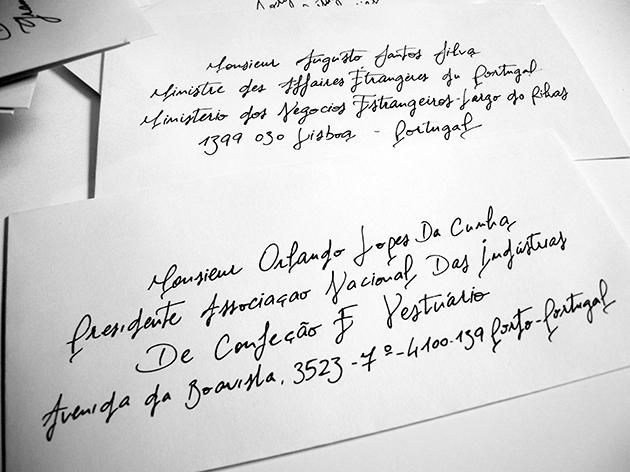 Monsieur Augusto Santos Silva
Ministre des Affaires Etrangères du Portugal
Ministerio dos Negocios Estrangeiros - Largo do Rilvas
1399 030 Lisboa - Portugal
Monsieur Orlando Lopes Da Cunha
Presidente Associaçao Nacional Das Indústrias
De Confeção E Vestuário
Avenida da Boavista, 3523 - 7º - 4100-139 Porto - Portugal